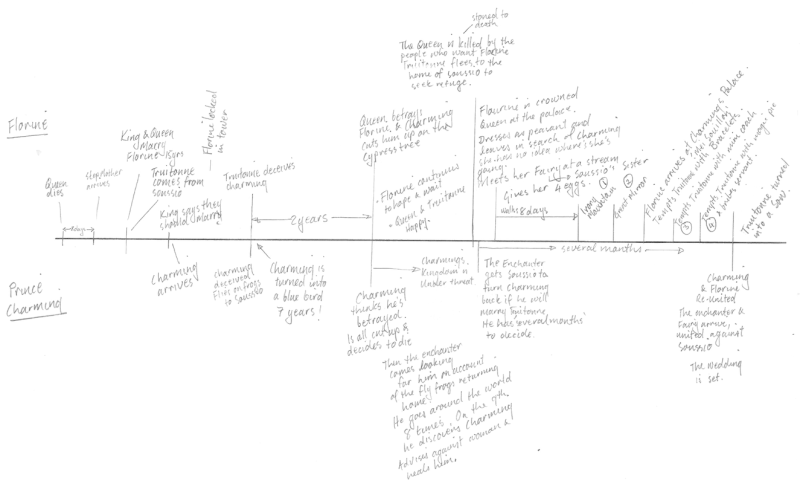 stoned to
death
The Queen is killed by the
people who want Florine
Truitonne flees to the
home of Soussio to
seek refuge.
Florine
Queen
dies
4 days
stepfather
arrives
King & Queen
marry
Florine 15yrs
Truitonne
comes from
soussio
King says they
should marry
Florine locked
in tower
Truitonne deceives
charming
2 years
Queen betrays
Florine, & Charming
cuts him up on the
Cypress tree
• Florine continues
to hope & wait
• Queen & Truitonne
Happy.
Flaurine is crowned
Queen at the palace.
Dresses as peasant and
leaves in search of Charming
she has no idea where she's
going.
Meets her Fairy at a stream
→ Soussio's Sister
Gives her 4 eggs.
walks 8 days
Ivory
Mountain
①
Great mirror
②
Florine arrives at Charming's Palace.
Tempts Truitonne with Bracelets
③
Tempts Truitonne with mini coach
④
Tempts Truitonne with magic pie
& bribes servant.
Truitonne turned
into a sow.
several months
Prince
Charming
Charming
arrives
charming
deceived
Flies on frogs
to Soussio
Charming is
turned into
a blue bird
7 years!
Charming
thinks he's
betrayed.
Is all cut up &
decides to die
Charmings
Kingdom is
Under threat
Then the enchanter
comes looking
for him on account
of the fly frogs returning
home.
He goes around the world
8 times. On the 7th
he discovers Charming
Advises against woman &
heals him.
The Enchanter
gets Soussio to
turn Charming
back if he will
marry Truitonne.
He has several months
to decide.
Charming
& Florine
Re-United
The enchanter &
Fairy arrive,
united against
Soussio
The Wedding
is set.